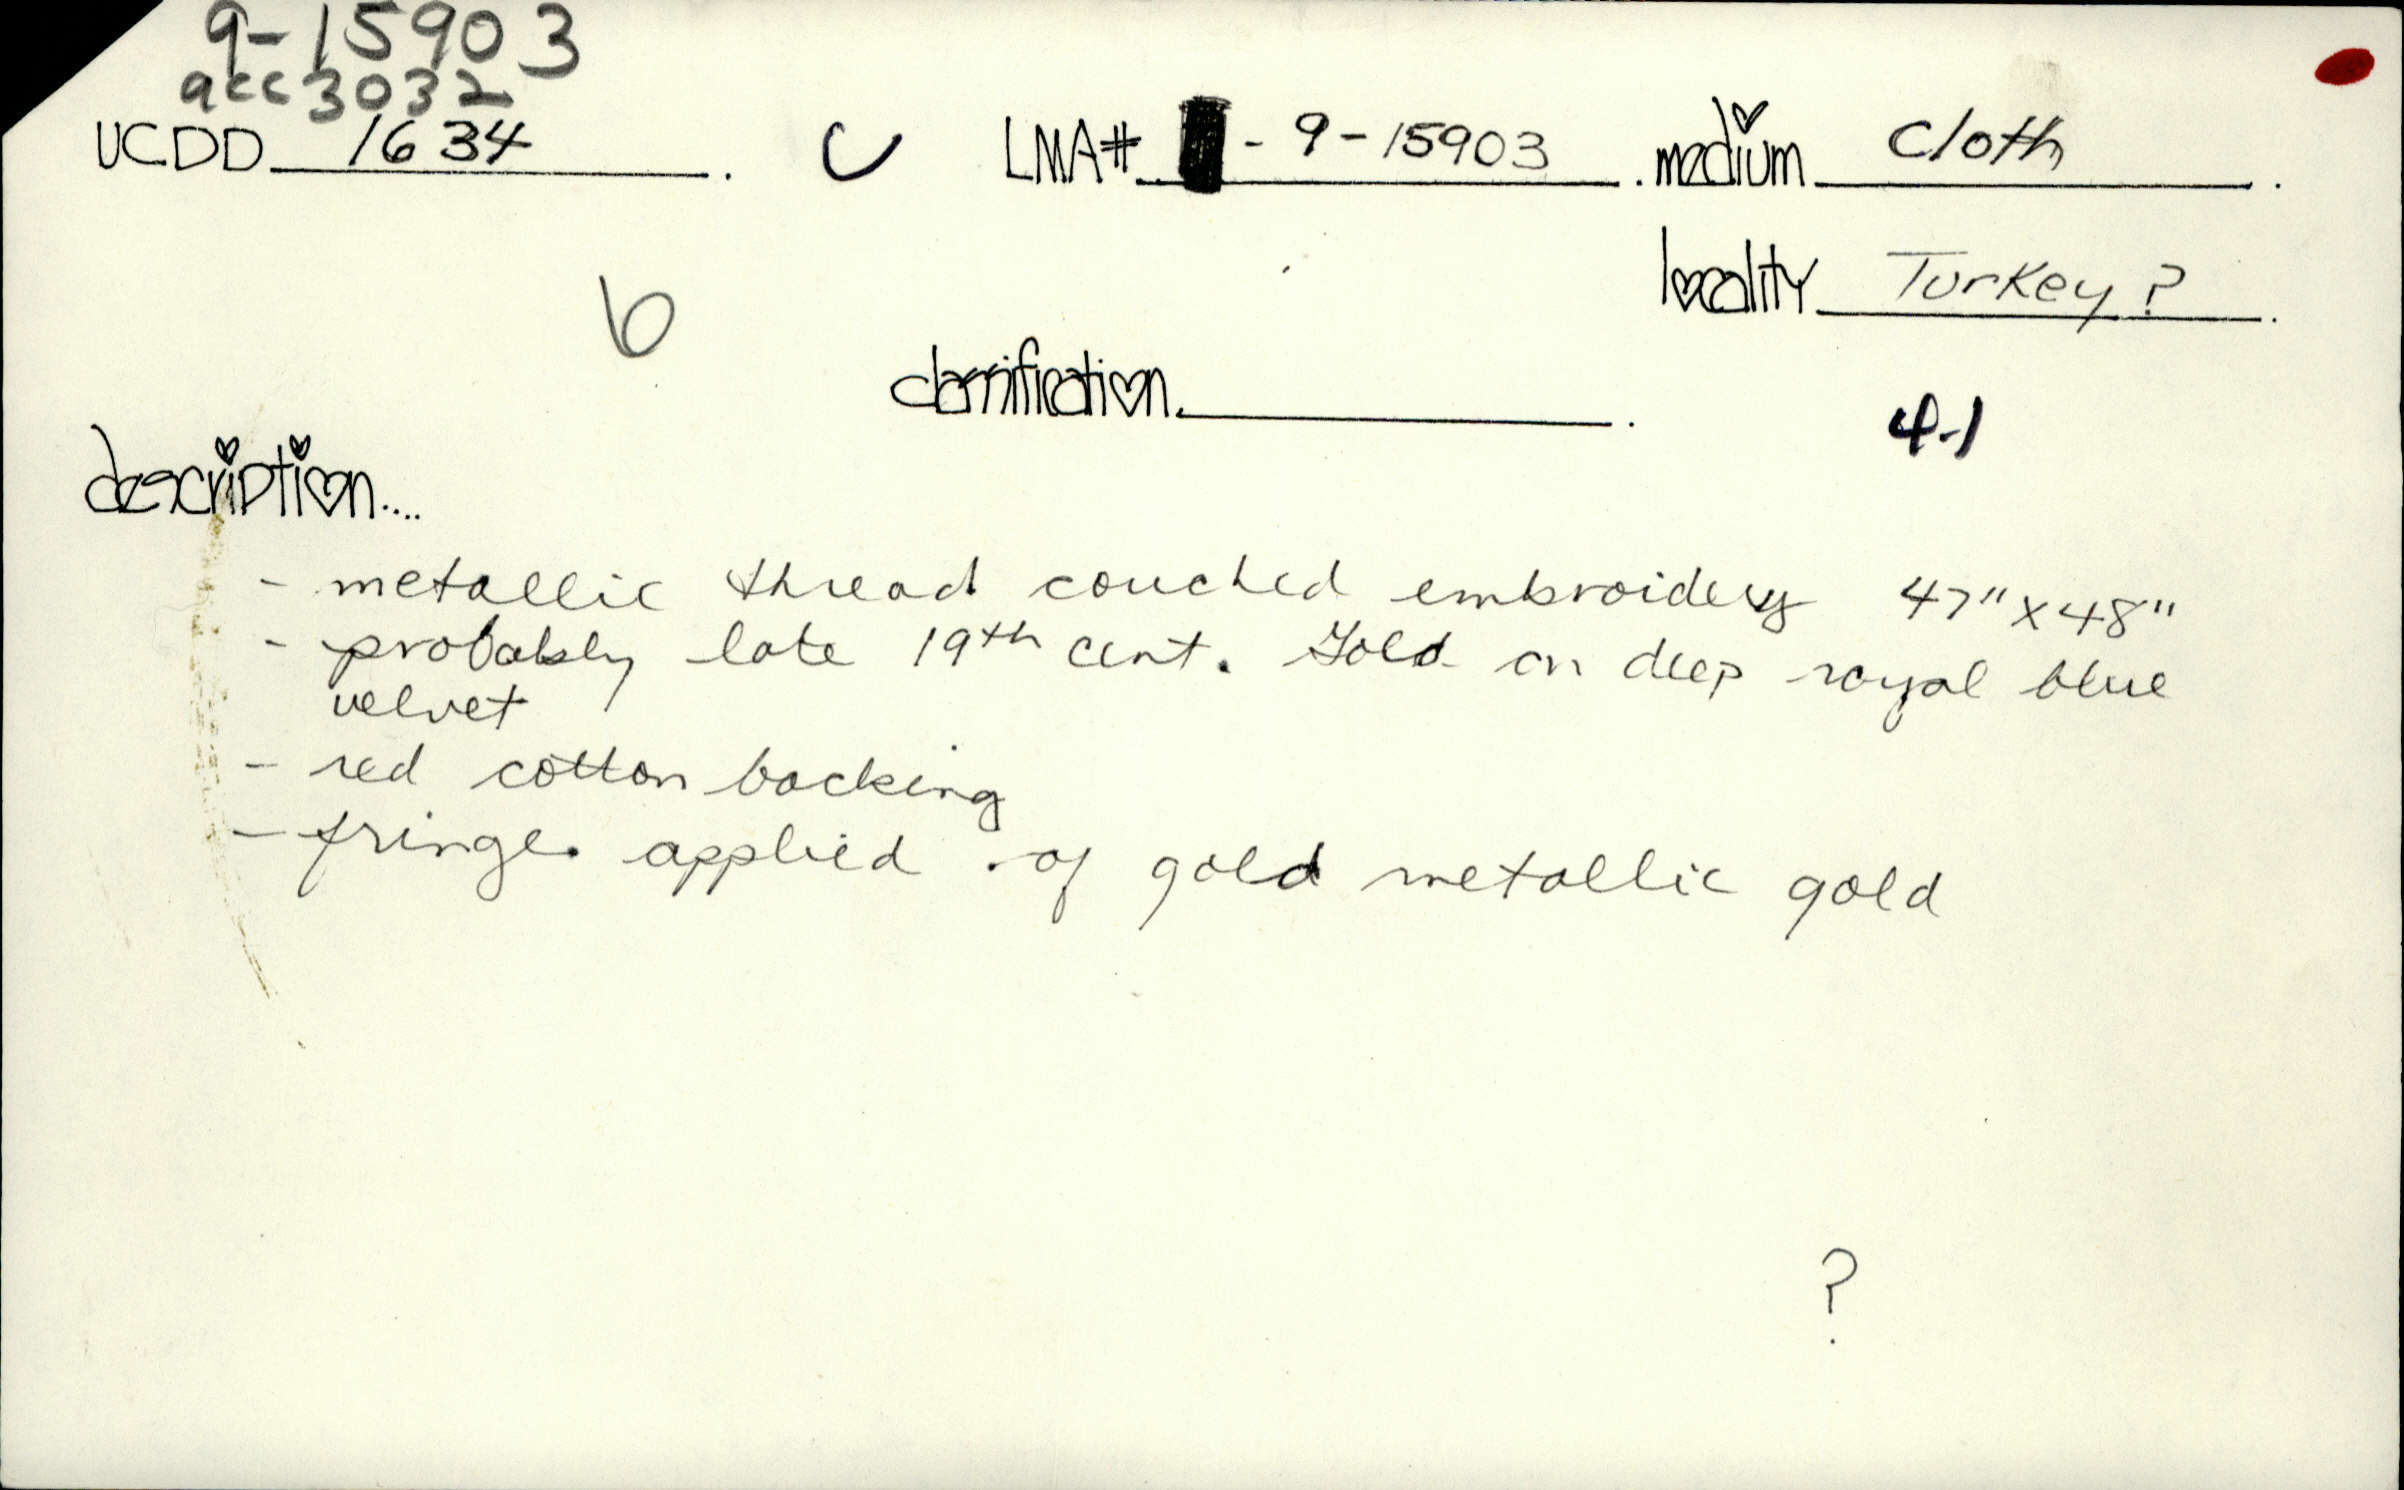 9-15903
acc 3032
UCDD 1634. C LMA# - 9-15903. medium Cloth.
locality Turkey?.
6
classification.
4-1
description....
- metallic thread couched embroidery 47" x 48"
- probably late 19th cent. Gold on deep royal blue
velvet
- red cotton backing
- fringe applied of gold metallic gold
?